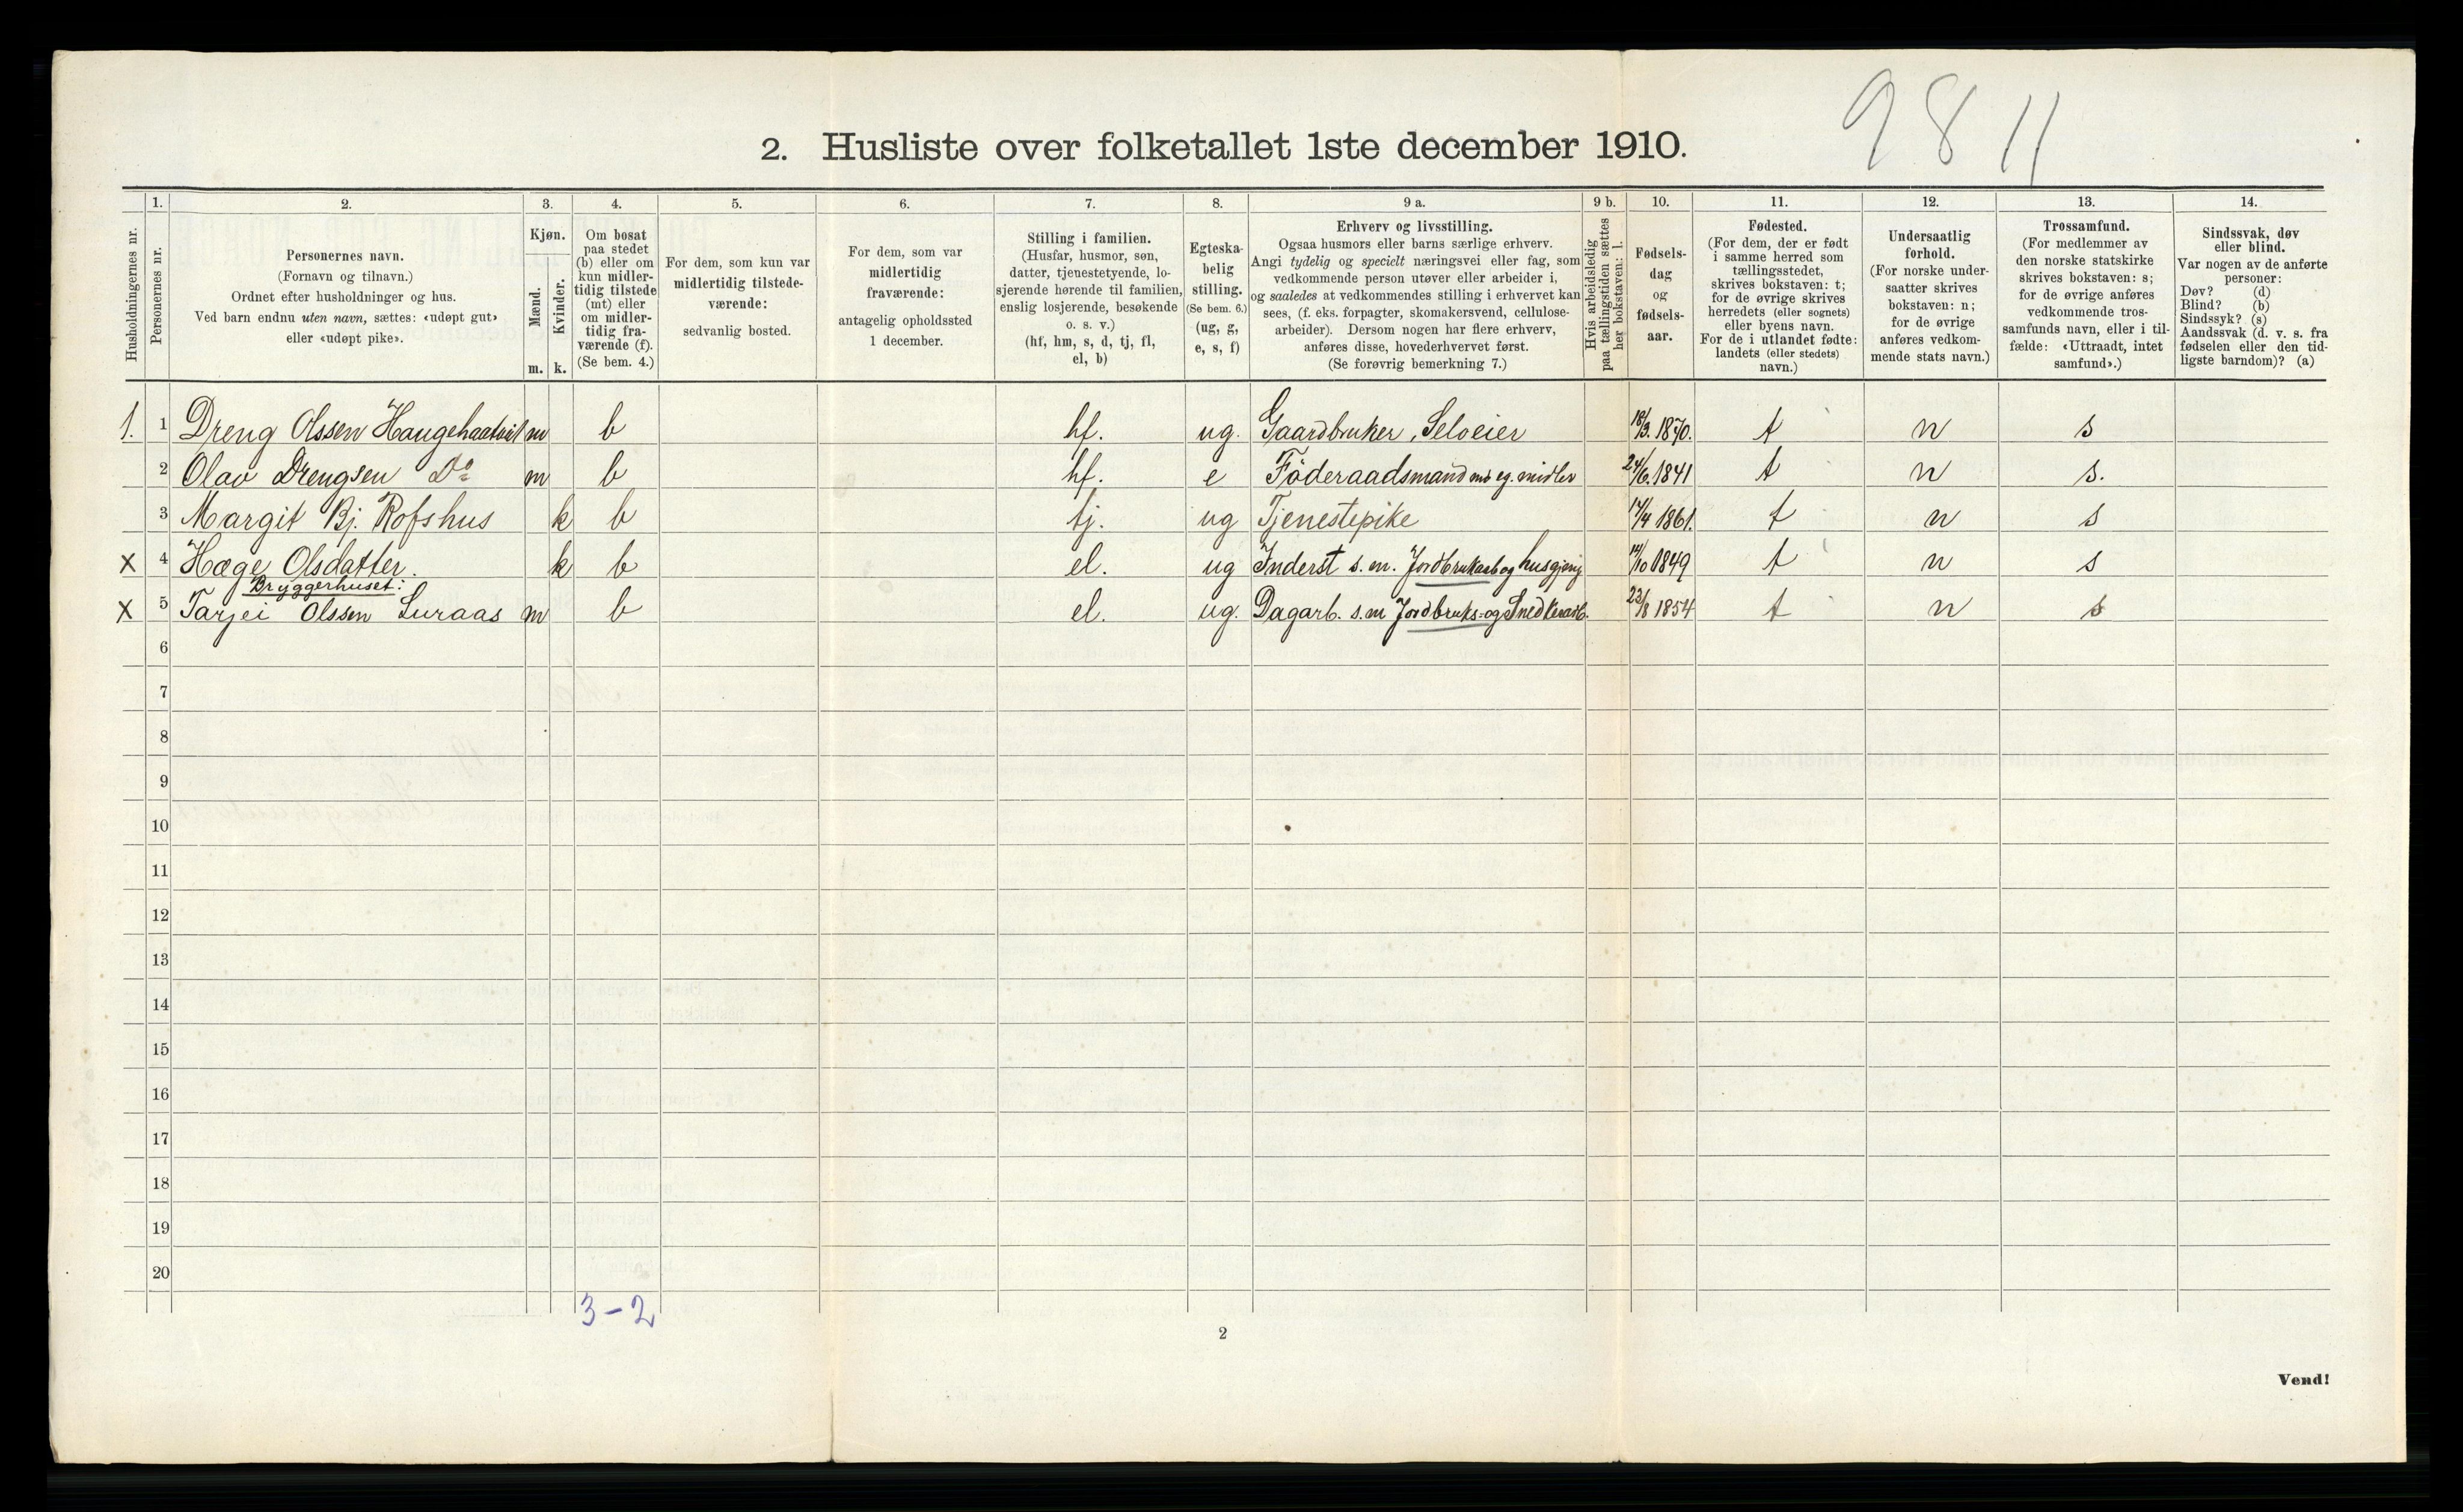 9811
2. Husliste over folketallet 1ste december 1910.
Husholdningernes nr.
1. Personernes nr.
2. Personernes navn.
(Fornavn og tilnavn.)
Ordnet efter husholdninger og hus.
Ved barn endnu uten navn, sættes: «udøpt gut»
eller «udøpt pike».
3. Kjøn.
Mænd. m.
Kvinder. k.
4. Om bosat
paa stedet
(b) eller om
kun midler-
tidig tilstede
(mt) eller
om midler-
tidig fra-
værende (f).
(Se bem. 4.)
5. For dem, som kun var
midlertidig tilstede-
værende:
sedvanlig bosted.
6. For dem, som var
midlertidig
fraværende:
antagelig opholdssted
1 december.
7. Stilling i familien.
(Husfar, husmor, søn,
datter, tjenestetyende, lo-
sjerende hørende til familien,
enslig losjerende, besøkende
o. s. v.)
(hf, hm, s, d, tj, fl,
el, b)
8. Egteska-
belig
stilling.
(Se bem. 6.)
(ug, g,
e, s, f)
9 a. Erhverv og livsstilling.
Ogsaa husmors eller barns særlige erhverv.
Angi tydelig og specielt næringsvei eller fag, som
vedkommende person utøver eller arbeider i,
og saaledes at vedkommendes stilling i erhvervet kan
sees, (f. eks. forpagter, skomakersvend, cellulose-
arbeider). Dersom nogen har flere erhverv,
anføres disse, hovederhvervet først.
(Se forøvrig bemerkning 7.)
9 b. Hvis arbeidsledig
paa tællingstiden sættes
her bokstaven: l.
10. Fødsels-
dag
og
fødsels-
aar.
11. Fødested.
(For dem, der er født
i samme herred som
tællingsstedet,
skrives bokstaven: t;
for de øvrige skrives
herredets (eller sognets)
eller byens navn.
For de i utlandet fødte:
landets (eller stedets)
navn.)
12. Undersaatlig
forhold.
(For norske under-
saatter skrives
bokstaven: n;
for de øvrige
anføres vedkom-
mende stats navn.)
13. Trossamfund.
(For medlemmer av
den norske statskirke
skrives bokstaven: s;
for de øvrige anføres
vedkommende tros-
samfunds navn, eller i til-
fælde: «Uttraadt, intet
samfund».)
14. Sindssvak, døv
eller blind.
Var nogen av de anførte
personer:
Døv? (d)
Blind? (b)
Sindssyk? (s)
Aandssvak (d. v. s. fra
fødselen eller den tid-
ligste barndom)? (a)
1. 1 Dreng Olssen Haugehaatveit m b hf. ug. Gaardbruker, Selveier 18/3. 1870. t n s
2 Olav Drengsen Do m b hf. e Föderaadsmand m eg. midler 24/6. 1841 t n s.
3 Margit Bj. Rofshus k b tj. ug Tjenestepike 17/4 1861. t n s
X 4 Hæge Olsdatter. k b el. ug Inderst s. m. Jordbruksarb og husgjerning 14/10 1849 t n s
Bryggerhuset:
X 5 Tarjei Olssen Luraas m b el. ug. Dagarb. s. m Jordbruks- og Snedkerarb. 23/8 1854 t n s
6
7
8
9
10
11
12
13
14
15
16
17
18
19
20
3-2
2
Vend!